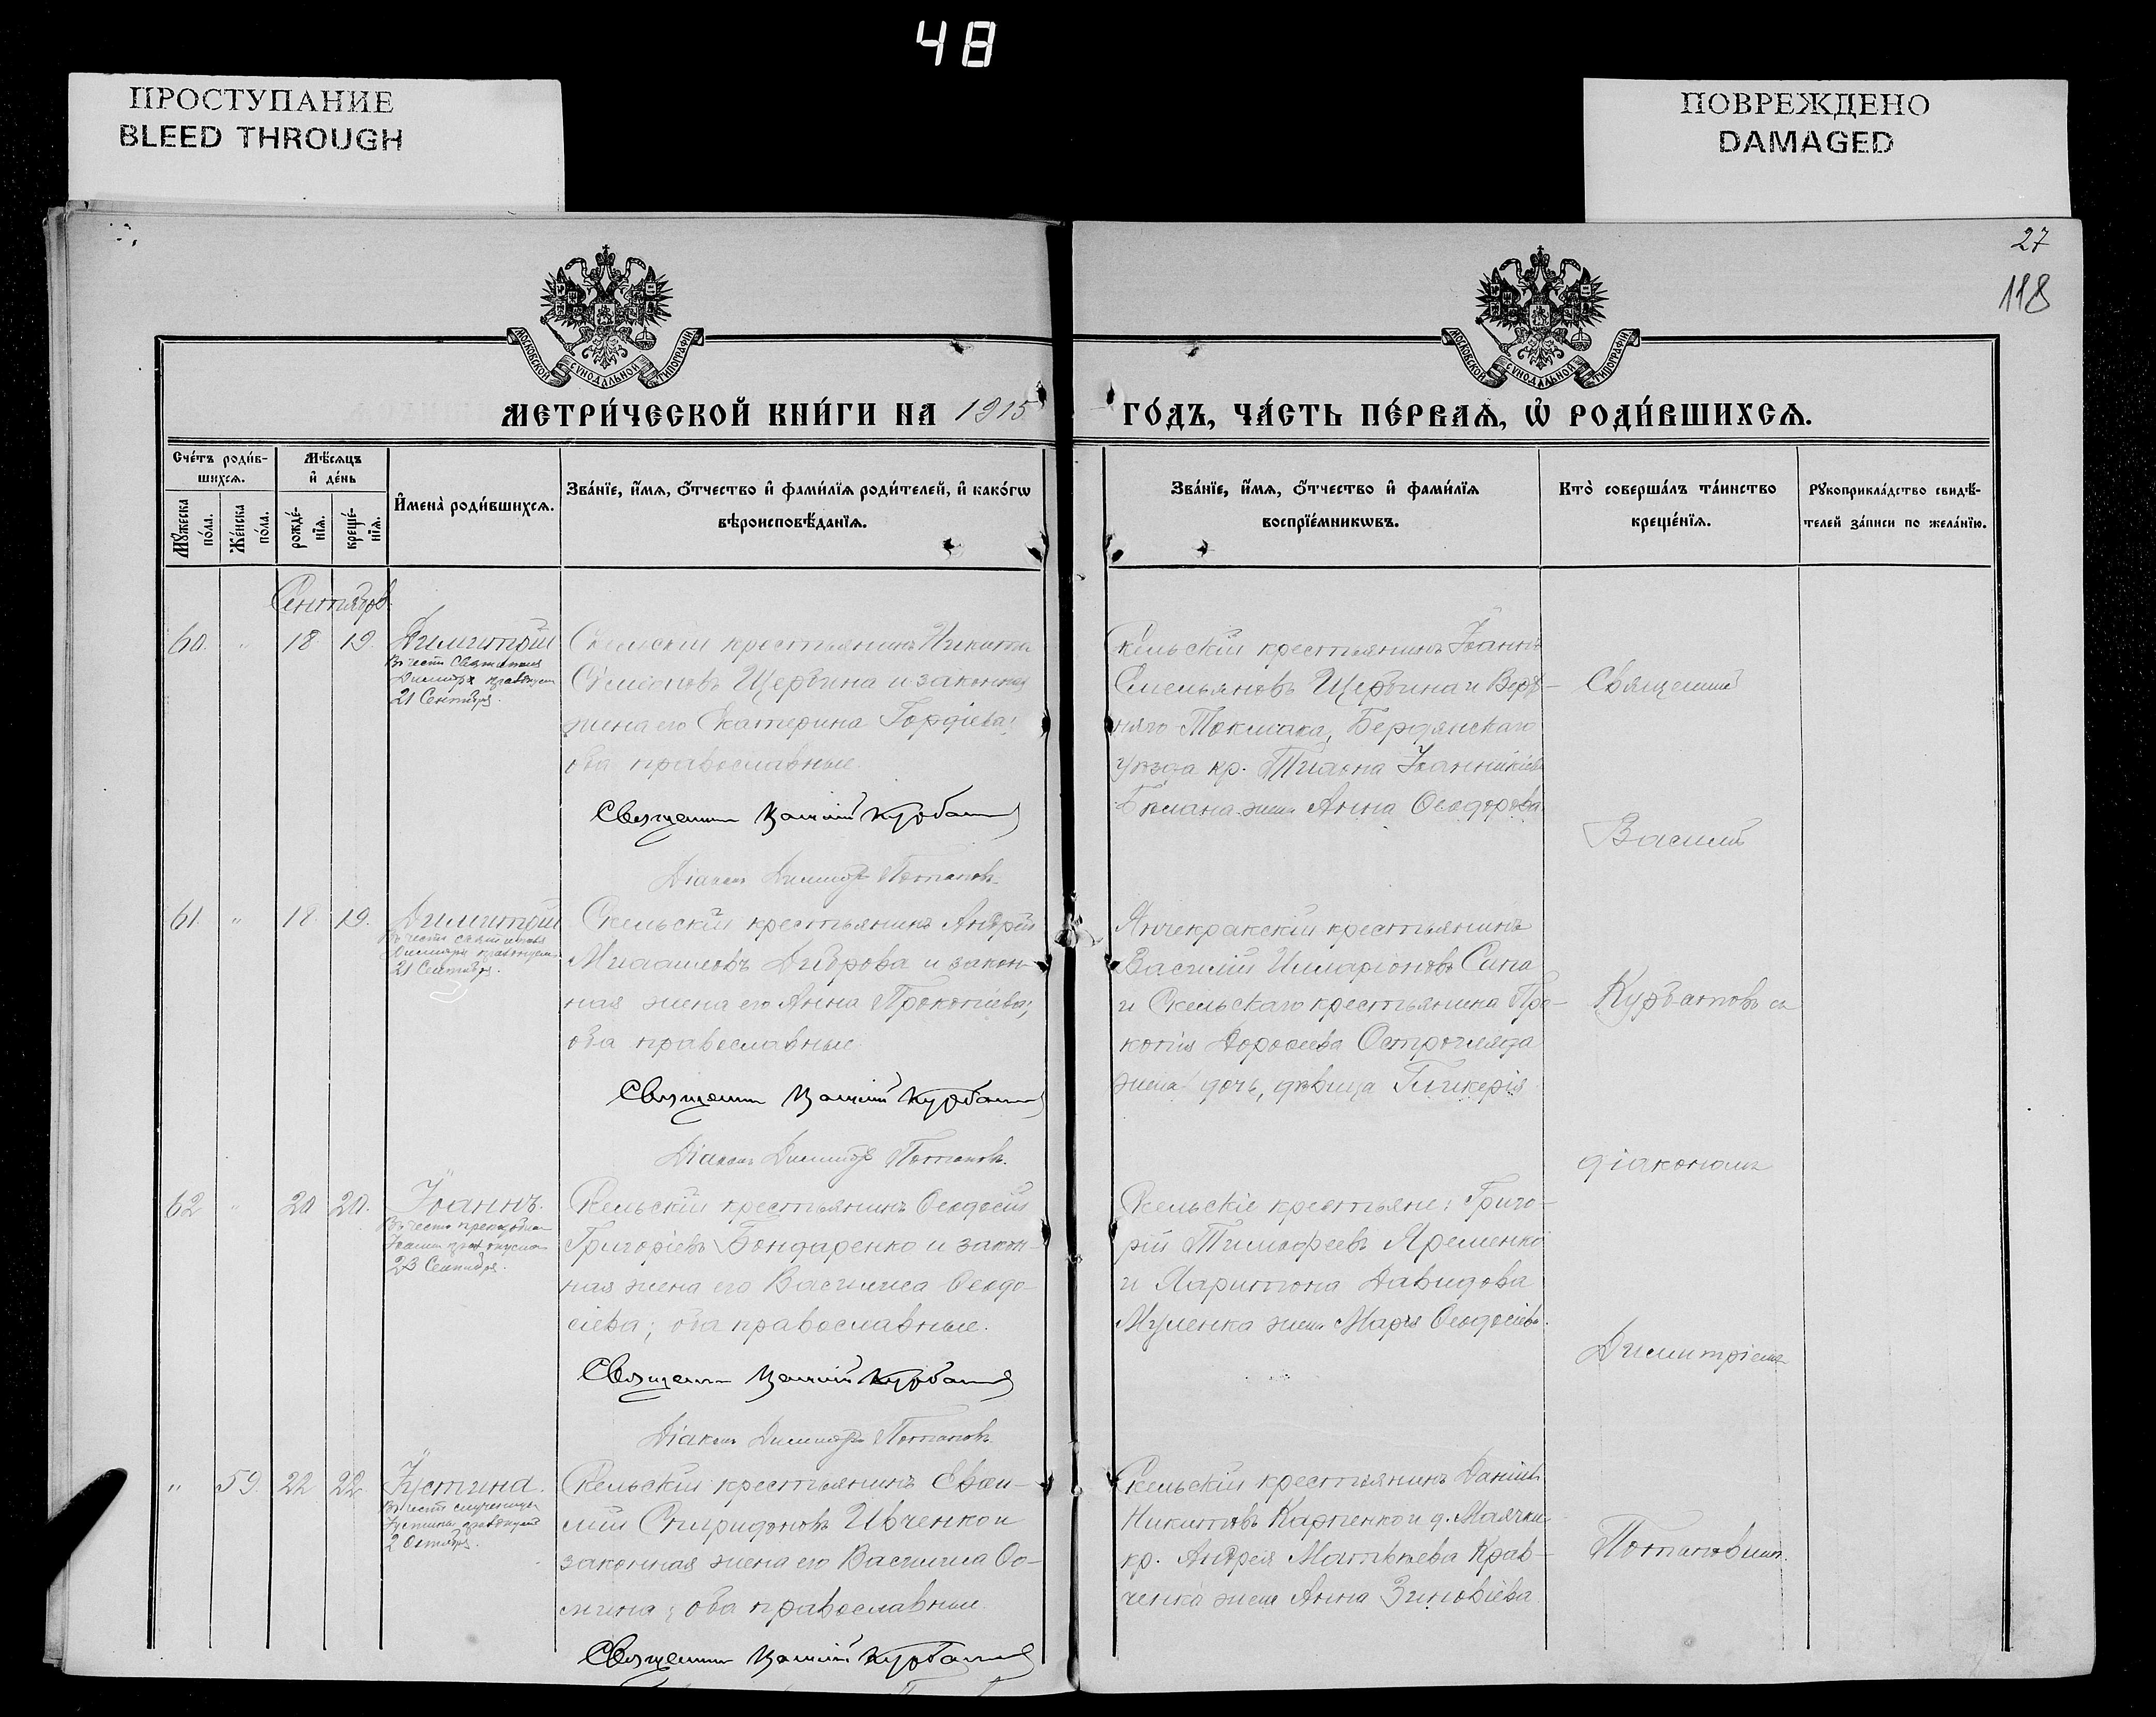 48
ПРОСТУПАНИЕ
BLEED THROUGH
ПОВРЕЖДЕНО
DAMAGED
27
118
МОСКОВСКОЙ СУНОДАЛЬНОЙ ТИПОГРАФІИ
МОСКОВСКОЙ СУНОДАЛЬНОЙ ТИПОГРАФІИ
МЕТРИ́ЧЕСКОЙ КНИ́ГИ НА 1915
ГО́ДЪ, ЧА́СТЬ ПЕ́РВАѦ, Ѡ҆ РОДИ́ВШИХСѦ.
Сче́тъ роди́в-
шихсѧ.
Мѣ́сѧцъ
и҆ де́нь
Мꙋ́жеска по́ла.
Же́нска по́ла.
рожде́-
нїѧ.
креще́-
нїѧ.
И҆мена̀ роди́вшихсѧ.
Зва́нїе, и҆́мѧ, ѻ҆́тчество и҆ фами́лїѧ роди́телей, и҆ како́гѡ
вѣроисповѣ́данїѧ.
Зва́нїе, и҆́мѧ, ѻ҆́тчество и҆ фами́лїѧ
воспрїе́мникѡвъ.
Кто̀ соверша́лъ та́инство
креще́нїѧ.
Рꙋкоприкла́дство свидѣ́-
телей за́писи по жела́нїю.
Сентябрь
60. " 18 19. Димитрій
Въ честь Святителя
Димитрія празднуем
21 Сентября.
Скельскій крестьянинъ Никита
Сѵмеоновъ Щербина и законная
жена его Екатерина Гордіева;
оба православные.
Священникъ Василій Курбатовъ
Діаконъ Димитрій Потаповъ
Скельскій крестьянинъ Іоаннъ
Емельяновъ Щербина и Верх-
няго Токмака, Бердянскаго
уѣзда кр. Іоанникіева
жена Анна Ѳеодорова
61. " 18. 19. Димитрій
Въ честь святителя
Димитрія празднуем
21 Сентября.
Скельскій крестьянинъ Андрей
Диброва и закон-
ная жена его Анна Прокопіева;
оба православные
Священникъ Василій Курбатовъ
Діаконъ Димитрій Потаповъ.
Янчекракскій крестьянинъ
Василій Иларіоновъ Сипа
и Скельскаго крестьянина Про-
копія Дороѳеева Острогляда
дочь, дѣвица Гликерія
62 " 20 20. Іоаннъ.
Въ честь преподобнаго
Іоанна празднуемаго
23 Сентября.
Скельскій крестьянинъ Ѳеодосій
Григоріевъ Бондаренко и закон-
ная жена его Василиса Ѳеодо-
сіева; оба православные.
Священникъ Василій Курбатовъ
Діаконъ Димитрій Потаповъ
Скельскіе крестьяне: Григо-
рій Тимоѳеевъ Яременко
и Харитона Давидова
Муленка жена Марія Ѳеодосіева.
" 59. 22 22. Іустина.
Въ честь мученицы
Іустины празднуемой
2 Октября.
Скельскій крестьянинъ Евѳи-
мій Спиридоновъ Ивченко и
законная жена его Василиса Ѳо-
мина; оба православные.
Священникъ Василій Курбатовъ
Скельскій крестьянинъ Даніилъ
Никитовъ Карпенко и д. Маячки
кр. Андрея Матвѣева Крав-
ченка жена Анна Зиновіева
Священникъ
Василій
Курбатовъ съ
діакономъ
Димитріемъ
Потаповымъ.